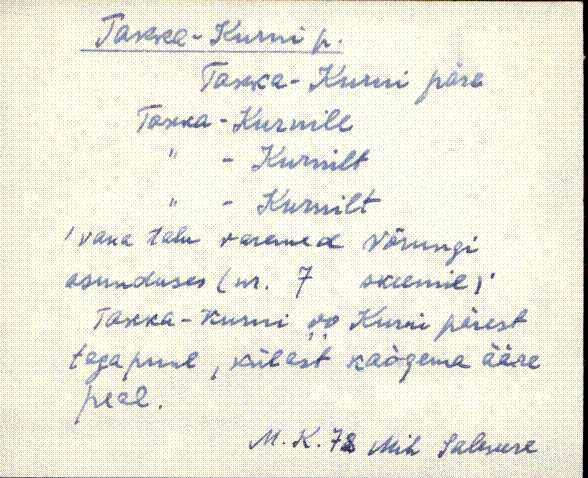 Takka-Kurni p.
Takka-Kurni päre
Takka-Kurnile
" - Kurnilt
" - Kurnilt
'vana talu varemed Võrungi
asunduses (nr. 7 skeemil)'
Takka-Kurni Kurni pärest
taga puul, külast kaògema ääre
peal.
M. K. 78 Mih